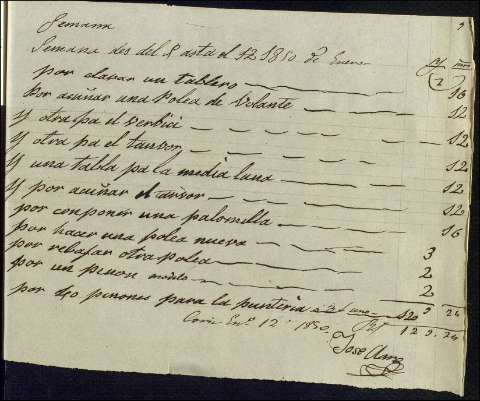 Semana
Semana des del 8 asta el 12 1850 de Enero
por clavar un tablero 16
Por acuñar una Polea de Volante 12
y otra pa el 12
y otra pa el 12
y una tabla pa la media luna 12
y por acuñar el 12
por componer una palomilla 16
por hacer una polea nueva 3
por rebajar otra polea 2
por un pinon modelo 2
9 24
por 40 pinones para la punteria 120
129. 24
Enº 12 1850
Jose